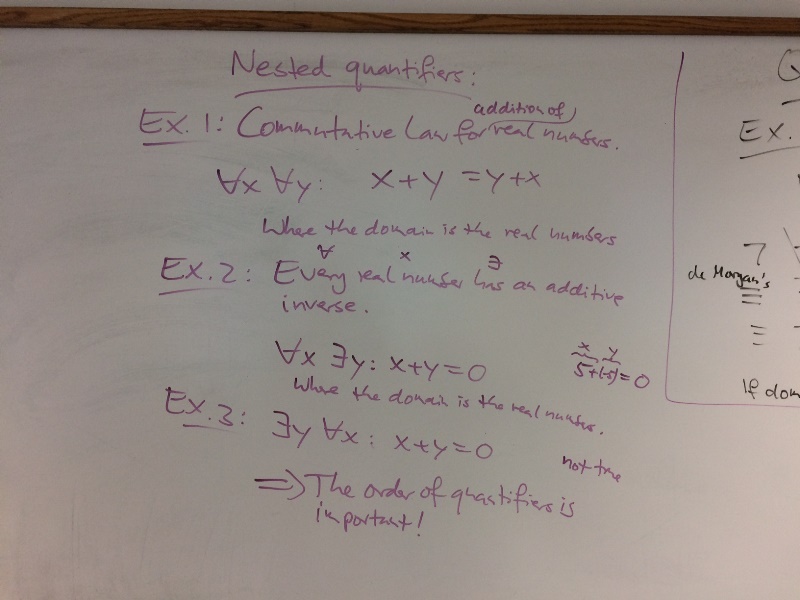 Nested quantifiers:
addition of
Ex. 1: Commutative Law for real numbers.
∀x ∀y: x+y = y+x
Where the domain is the real numbers
∀ x ∃
Ex. 2: Every real number has an additive
inverse.
∀x ∃y: x+y=0
x y
5+(-5)=0
Where the domain is the real numbers.
Ex. 3: ∃y ∀x: x+y=0
not true
⟹ The order of quantifiers is
important!
Ex.
¬
de Morgan's
≡
≡
If dom